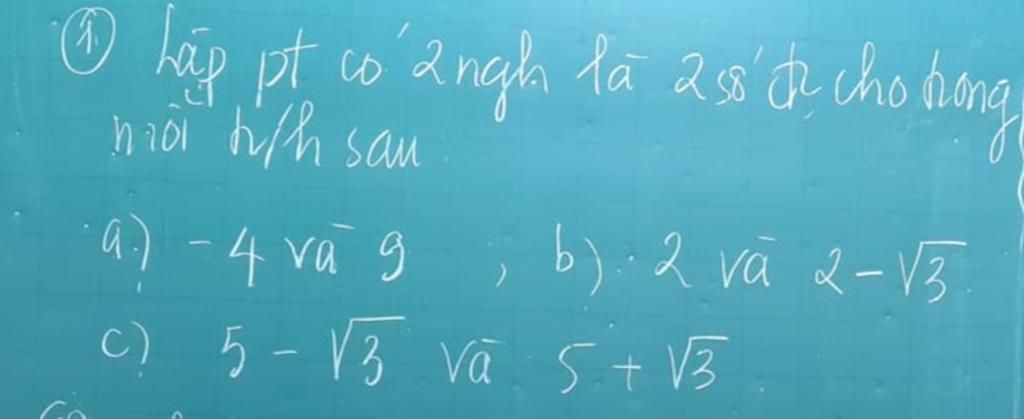 ① Lập pt có 2 ngh là 2 số đc cho trong
mỗi tr/h sau
a.) - 4 và 9 , b). 2 và 2 - √3
c) 5 - √3 và 5 + √3